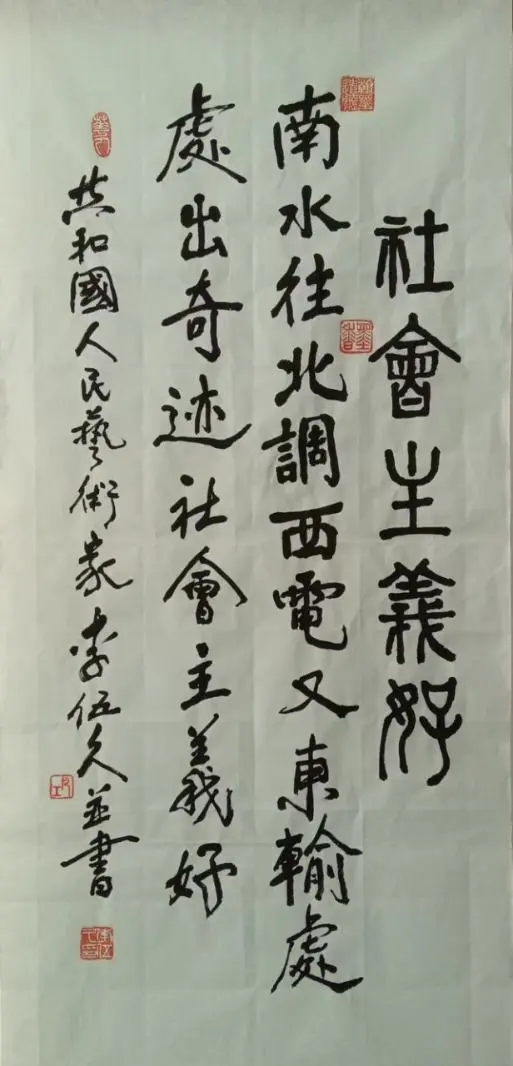 社會主義好
南水往北調西電又東輸處
處出奇迹社會主義好
共和國人民藝術家李伍久並書